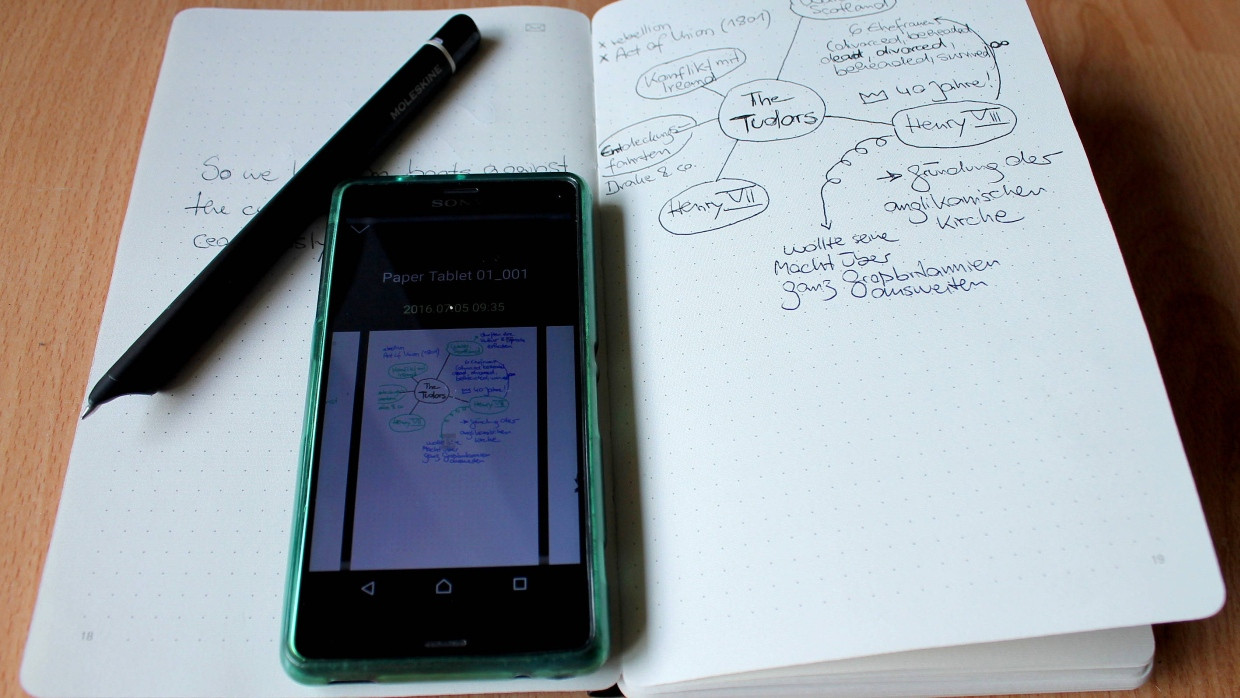 MOLESKINE
So we
against
the
18
SONY
Paper Tablet 01_001
2016.07.05 09:35
The
Tudors
Henry VII
Henry VIII
Scotland
x rebellion
x Act of Union (1801)
Konflikt mit
Ireand
Entdeckungs
fahrten
Drake & co.
The
Tudors
Henry VII
6 Ehefrauen
(divorced, beheaded
dead, divorced,
beheaded, survived
40 Jahre!
Henry VIII
→ gründung der
anglikanischen
Kirche
wollte seine
Macht über
ganz Großbritannien
ausweiten
19